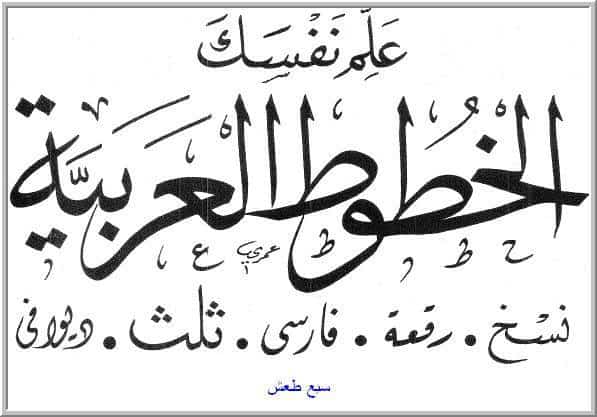 عَلِّم نَفْسَكَ
الخُطُوط العَرَبيَّة
نَسْخ . رقعة . فارسى . ثلث . ديوانى
سبع طعش